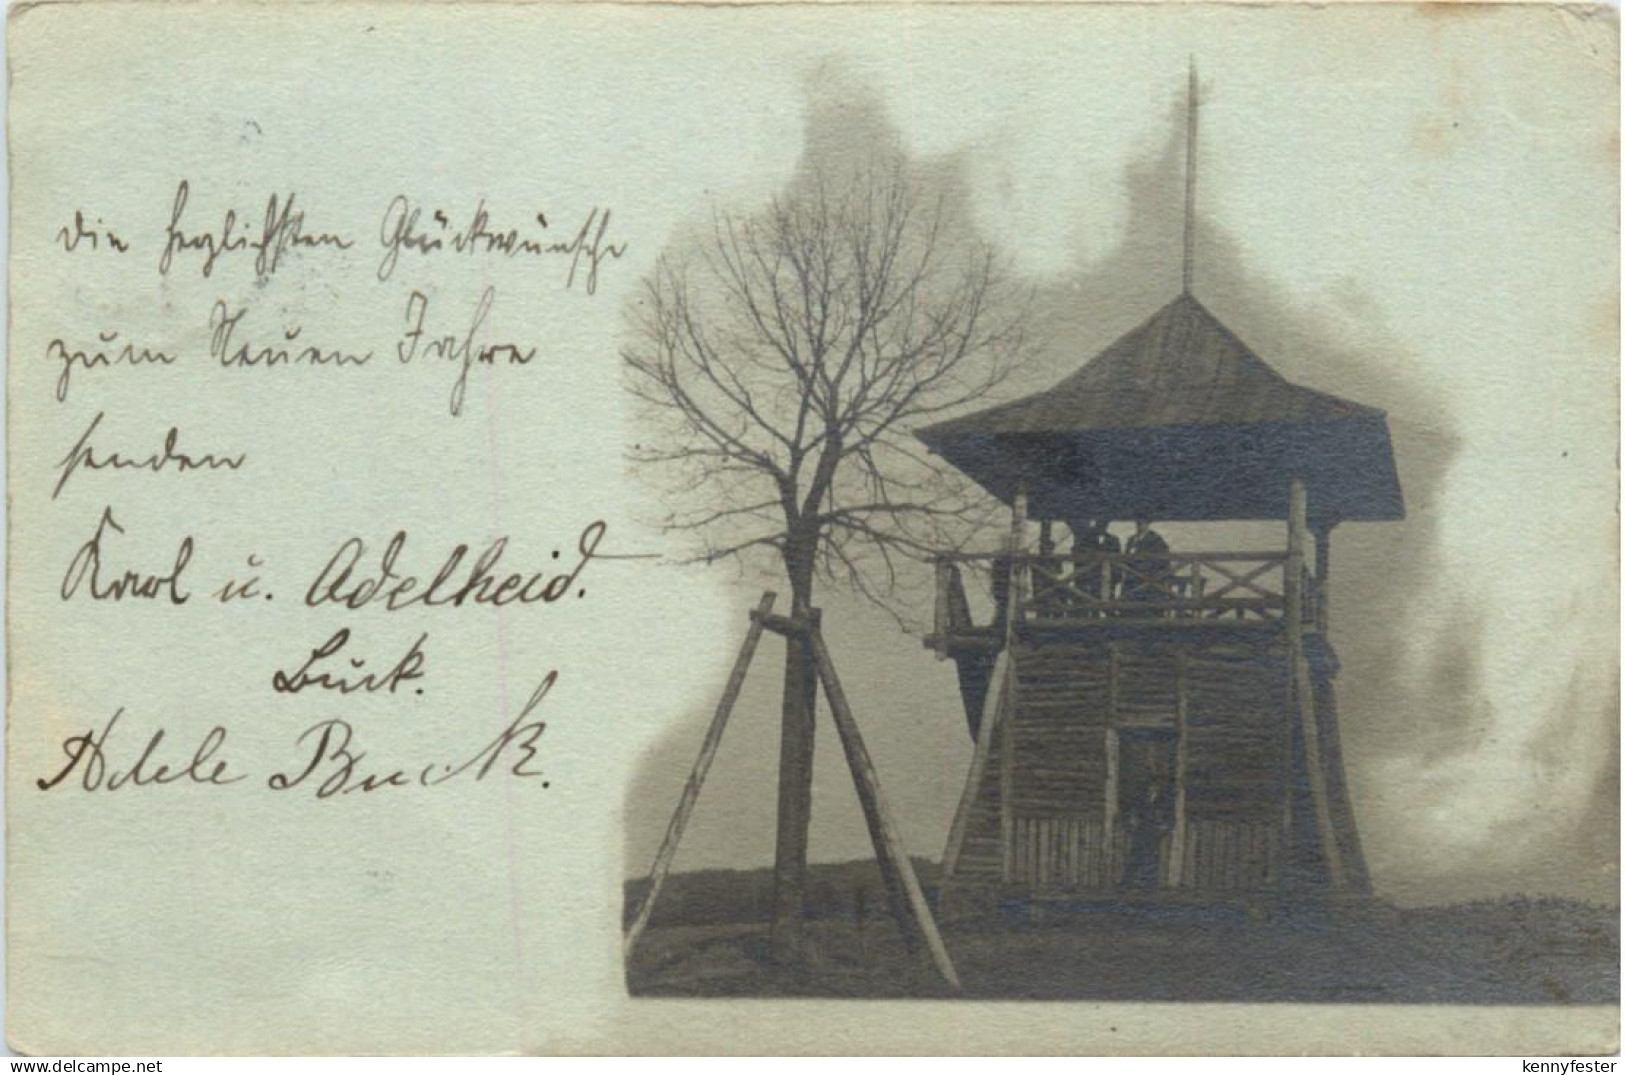 die herzlichsten Glückwünsche
zum Neuen Jahre
senden
Karl u. Adelheid.
Buck.
Adele Buck.
delcampe.net
kennyfester